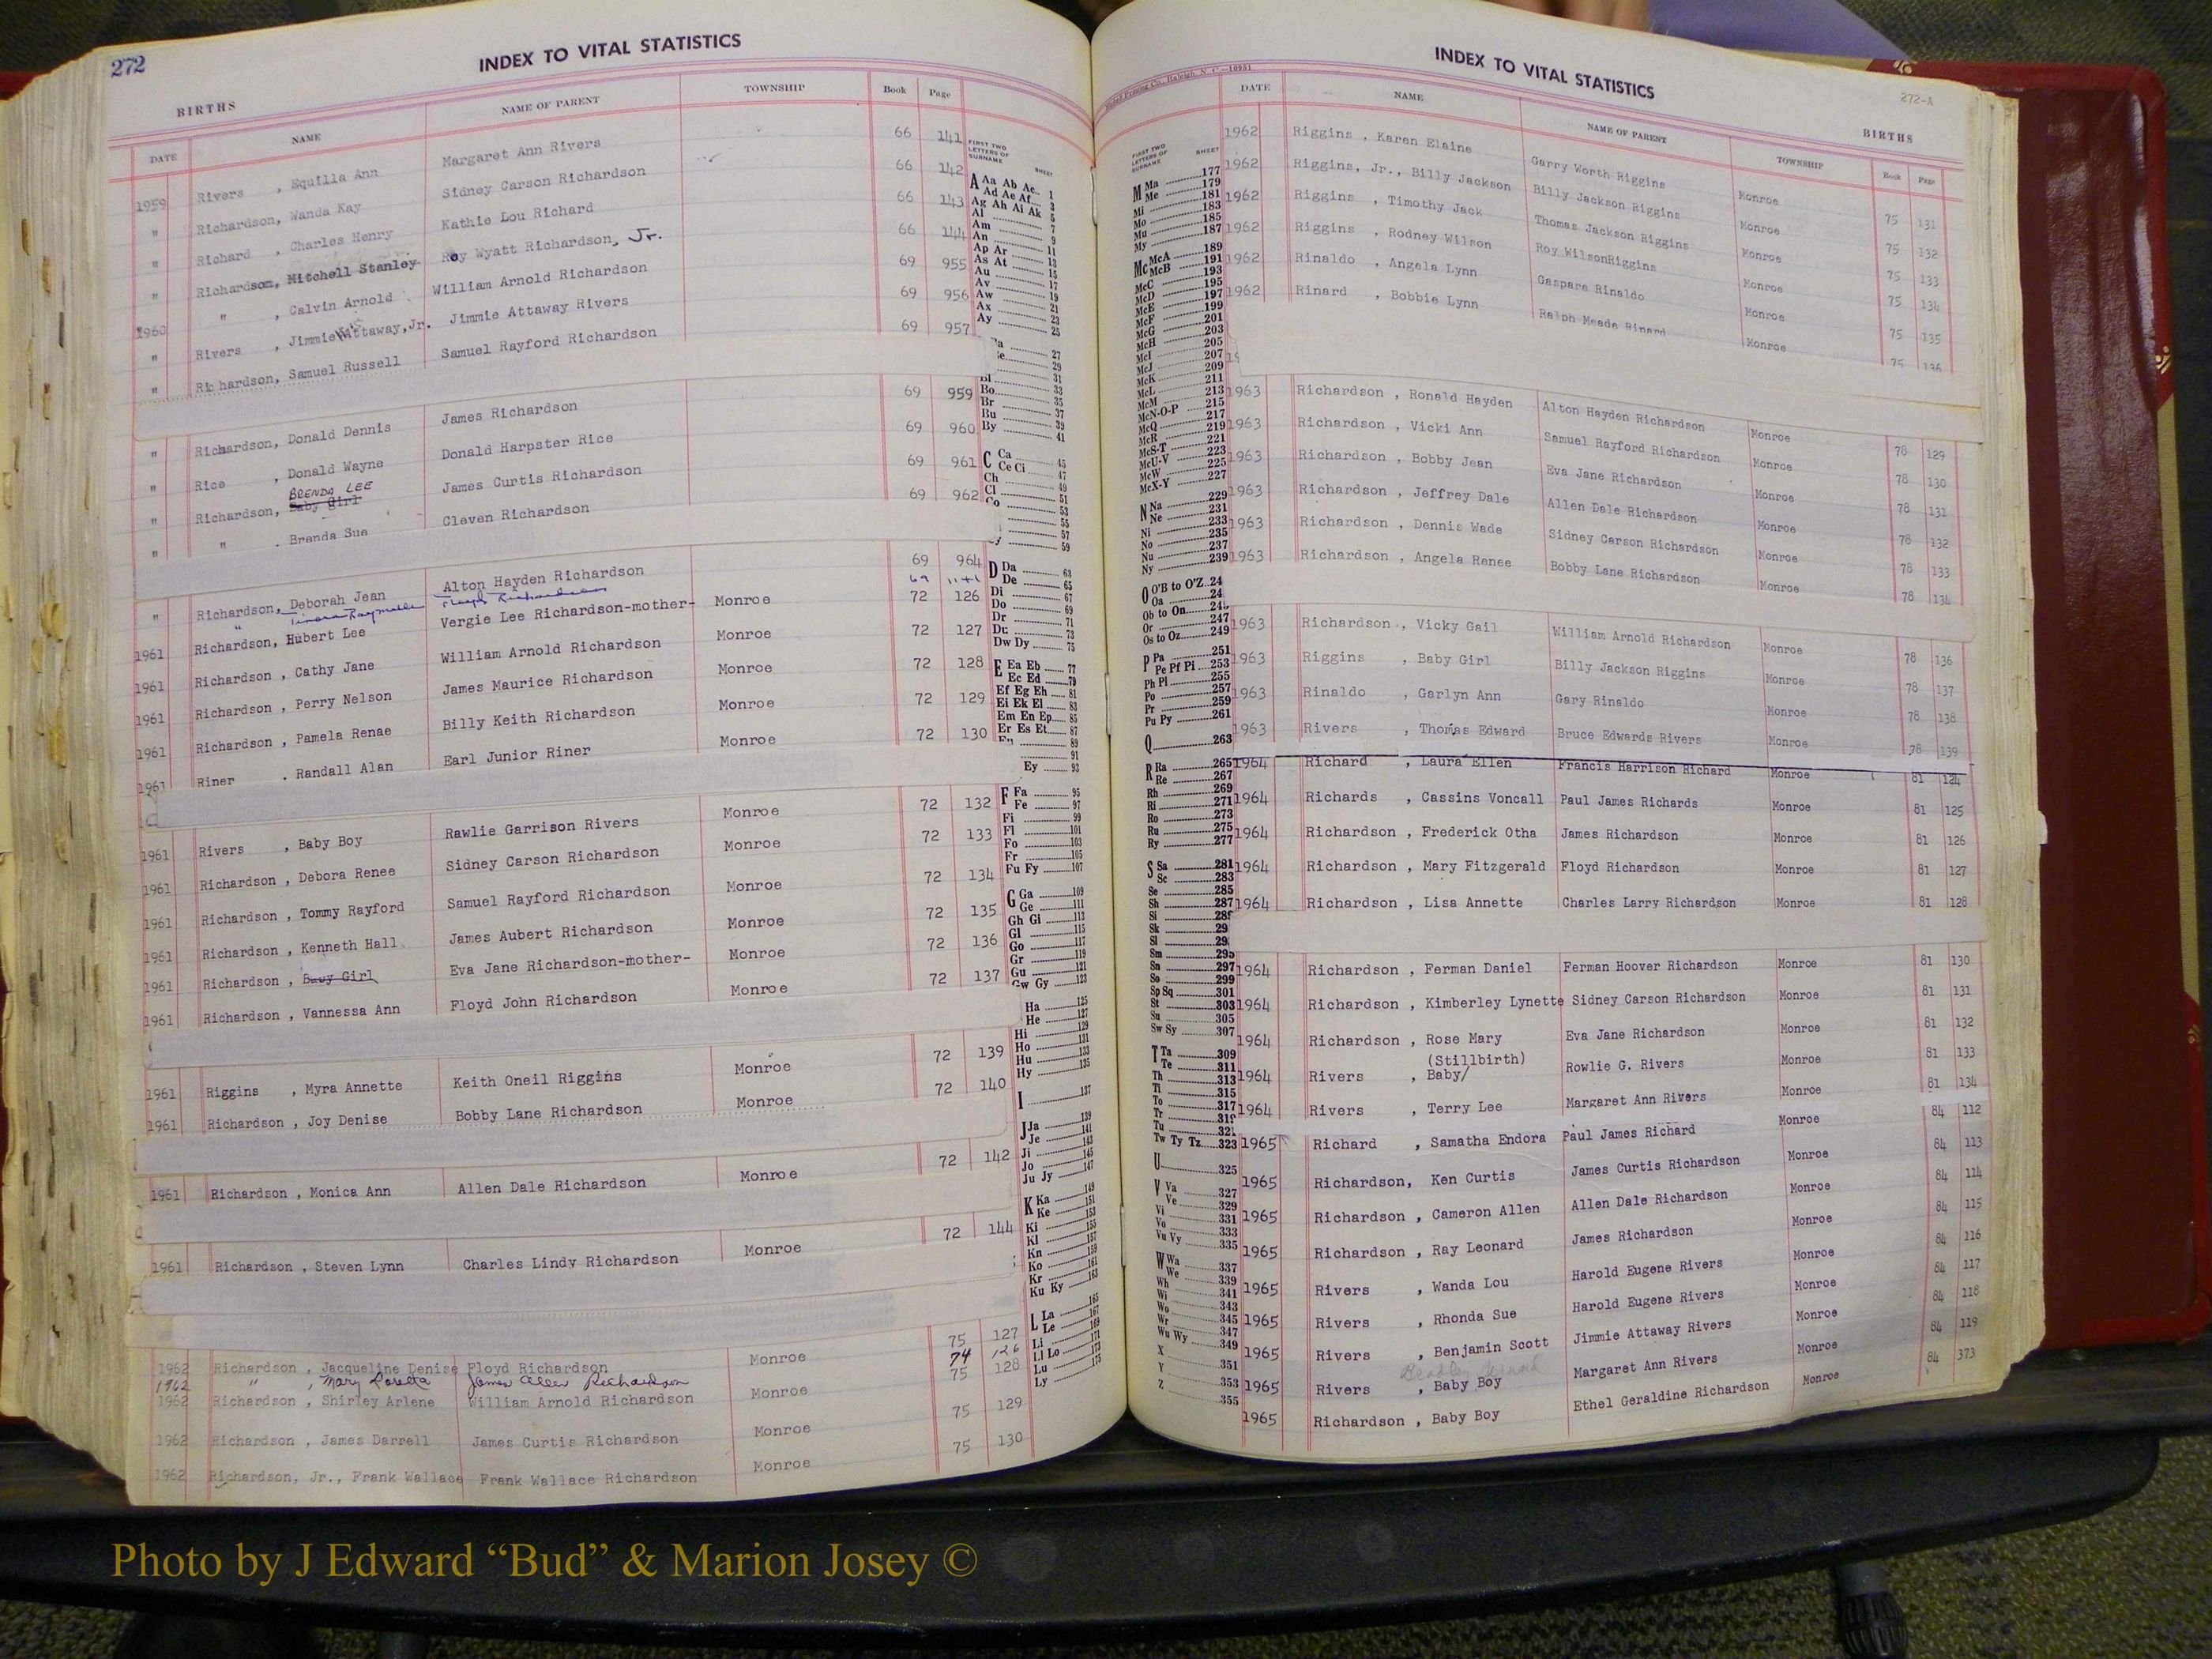 272
INDEX TO VITAL STATISTICS
BIRTHS
DATE NAME NAME OF PARENT TOWNSHIP Book Page
1959 Rivers , Equilla Ann Margaret Ann Rivers 66 141
" Richardson, Wanda Kay Sidney Carson Richardson 66 142
" Richard , Charles Henry Kathie Lou Richard 66 143
" Richardson, Mitchell Stanley Roy Wyatt Richardson, Jr. 66 144
" " , Calvin Arnold William Arnold Richardson 69 955
1960 Rivers , Jimmie Attaway, Jr. Jimmie Attaway Rivers 69 956
" Richardson, Samuel Russell Samuel Rayford Richardson 69 957
" Richardson, Donald Dennis James Richardson 69 959
" Rice , Donald Wayne Donald Harpster Rice 69 960
BRENDA LEE
" Richardson, Baby Girl James Curtis Richardson 69 961
" " . Brenda Sue Cleven Richardson 69 962
" Richardson, Deborah Jean Alton Hayden Richardson 69 964
" Floyd Richardson 69
1961 Richardson, Hubert Lee Vergie Lee Richardson-mother- Monroe 72 126
1961 Richardson , Cathy Jane William Arnold Richardson Monroe 72 127
1961 Richardson , Perry Nelson James Maurice Richardson Monroe 72 128
1961 Richardson , Pamela Renae Billy Keith Richardson Monroe 72 129
1961 Riner . Randall Alan Earl Junior Riner Monroe 72 130
1961 Rivers , Baby Boy Rawlie Garrison Rivers Monroe 72 132
1961 Richardson , Debora Renee Sidney Carson Richardson Monroe 72 133
1961 Richardson , Tommy Rayford Samuel Rayford Richardson Monroe 72 134
1961 Richardson , Kenneth Hall James Aubert Richardson Monroe 72 135
1961 Richardson , Baby Girl Eva Jane Richardson-mother- Monroe 72 136
1961 Richardson , Vannessa Ann Floyd John Richardson Monroe 72 137
1961 Riggins , Myra Annette Keith Oneil Riggins Monroe 72 139
1961 Richardson , Joy Denise Bobby Lane Richardson Monroe 72 140
1961 Richardson , Monica Ann Allen Dale Richardson Monroe 72 142
1961 Richardson , Steven Lynn Charles Lindy Richardson Monroe 72 144
1962 Richardson , Jacqueline Denise Floyd Richardson Monroe 75 127
1962 " , Mary Loretta James Allen Richardson 74 126
1962 Richardson , Shirley Arlene William Arnold Richardson Monroe 75 128
1962 Richardson , James Darrell James Curtis Richardson Monroe 75 129
1962 Richardson, Jr., Frank Wallace Frank Wallace Richardson Monroe 75 130
FIRST TWO
LETTERS OF
SURNAME SHEET
A Aa Ab Ac 1
Ad Ae Af 3
Ag Ah Ai Ak 5
Al 7
Am 9
An 11
Ap Ar 13
As At 15
Au 17
Av 19
Aw 21
Ax 23
Ay 25
27
29
Bl 31
Bo 33
Br 35
Bu 37
By 39
41
C Ca 45
Ce Ci 47
Ch 49
Cl 51
Co 53
55
57
59
D Da 63
De 65
Di 67
Do 69
Dr 71
Du 73
Dw Dy 75
E Ea Eb 77
Ec Ed 79
Ef Eg Eh 81
Ei Ek El 83
Em En Ep 85
Er Es Et 87
Eu 89
91
Ey 93
F Fa 95
Fe 97
Fi 99
Fl 101
Fo 103
Fr 105
Fu Fy 107
G Ga 109
Ge 111
Gh Gi 113
Gl 115
Go 117
Gr 119
Gu 121
Gw Gy 123
Ha 125
He 127
Hi 129
Ho 131
Hu 133
Hy 135
I 137
J Ja 139
Je 141
Ji 143
Jo 145
Ju Jy 147
K Ka 149
Ke 151
Ki 153
Kl 155
Kn 157
Ko 159
Kr 161
Ku Ky 163
L La 165
Le 167
Li 169
Ll Lo 171
Lu 173
Ly 175
INDEX TO VITAL STATISTICS
272-A
BIRTHS
DATE NAME NAME OF PARENT TOWNSHIP Book Page
1962 Riggins , Karen Elaine Garry Worth Riggins Monroe 75 131
1962 Riggins, Jr., Billy Jackson Billy Jackson Riggins Monroe 75 132
1962 Riggins , Timothy Jack Thomas Jackson Riggins Monroe 75 133
1962 Riggins , Rodney Wilson Roy WilsonRiggins Monroe 75 134
1962 Rinaldo , Angela Lynn Gaspare Rinaldo Monroe 75 135
1962 Rinard , Bobbie Lynn Ralph Meade Rinard Monroe 75 136
1963 Richardson , Ronald Hayden Alton Hayden Richardson Monroe 78 129
1963 Richardson , Vicki Ann Samuel Rayford Richardson Monroe 78 130
1963 Richardson , Bobby Jean Eva Jane Richardson Monroe 78 131
1963 Richardson , Jeffrey Dale Allen Dale Richardson Monroe 78 132
1963 Richardson , Dennis Wade Sidney Carson Richardson Monroe 78 133
1963 Richardson , Angela Renee Bobby Lane Richardson Monroe 78 134
1963 Richardson , Vicky Gail William Arnold Richardson Monroe 78 136
1963 Riggins , Baby Girl Billy Jackson Riggins Monroe 78 137
1963 Rinaldo , Garlyn Ann Gary Rinaldo Monroe 78 138
1963 Rivers , Thomas Edward Bruce Edwards Rivers Monroe 78 139
1964 Richard , Laura Ellen Francis Harrison Richard Monroe 81 124
1964 Richards , Cassins Voncall Paul James Richards Monroe 81 125
1964 Richardson , Frederick Otha James Richardson Monroe 81 126
1964 Richardson , Mary Fitzgerald Floyd Richardson Monroe 81 127
1964 Richardson , Lisa Annette Charles Larry Richardson Monroe 81 128
1964 Richardson , Ferman Daniel Ferman Hoover Richardson Monroe 81 130
1964 Richardson , Kimberley Lynette Sidney Carson Richardson Monroe 81 131
1964 Richardson , Rose Mary Eva Jane Richardson Monroe 81 132
(Stillbirth)
1964 Rivers , Baby/ Rowlie G. Rivers Monroe 81 133
1964 Rivers , Terry Lee Margaret Ann Rivers Monroe 81 134
1965 Richard , Samatha Endora Paul James Richard Monroe 84 112
1965 Richardson, Ken Curtis James Curtis Richardson Monroe 84 113
1965 Richardson , Cameron Allen Allen Dale Richardson Monroe 84 114
1965 Richardson , Ray Leonard James Richardson Monroe 84 115
1965 Rivers , Wanda Lou Harold Eugene Rivers Monroe 84 116
1965 Rivers , Rhonda Sue Harold Eugene Rivers Monroe 84 117
1965 Rivers , Benjamin Scott Jimmie Attaway Rivers Monroe 84 118
1965 Rivers , Baby Boy Margaret Ann Rivers Monroe 84 119
1965 Richardson , Baby Boy Ethel Geraldine Richardson Monroe 84 373
FIRST TWO
LETTERS OF
SURNAME SHEET
M Ma 177
Me 179
Mi 181
Mo 183
Mu 185
My 187
Mc McA 189
McB 191
McC 193
McD 195
McE 197
McF 199
McG 201
McH 203
McI 205
McJ 207
McK 209
McL 211
McM 213
McN-O-P 215
McQ 217
McR 219
McS-T 221
McU-V 223
McW 225
McX-Y 227
N Na 229
Ne 231
Ni 233
No 235
Nu 237
Ny 239
O O'B to O'Z 24
Oa 24
Ob to On 24
Or 247
Os to Oz 249
P Pa 251
Pe Pf Pi 253
Ph Pl 255
Po 257
Pr 259
Pu Py 261
Q 263
R Ra 265
Re 267
Rh 269
Ri 271
Ro 273
Ru 275
Ry 277
S Sa 281
Sc 283
Se 285
Sh 287
Si 289
Sk 29
Sl 29
Sm 295
Sn 297
So 299
Sp Sq 301
St 303
Su 305
Sw Sy 307
T Ta 309
Te 311
Th 313
Ti 315
To 317
Tr 319
Tu 321
Tw Ty Tz 323
U 325
V Va 327
Ve 329
Vi 331
Vo 333
Vu Vy 335
W Wa 337
We 339
Wh 341
Wi 343
Wo 345
Wr 347
Wu Wy 349
X 351
Y 353
Z 355
Photo by J Edward “Bud” & Marion Josey ©